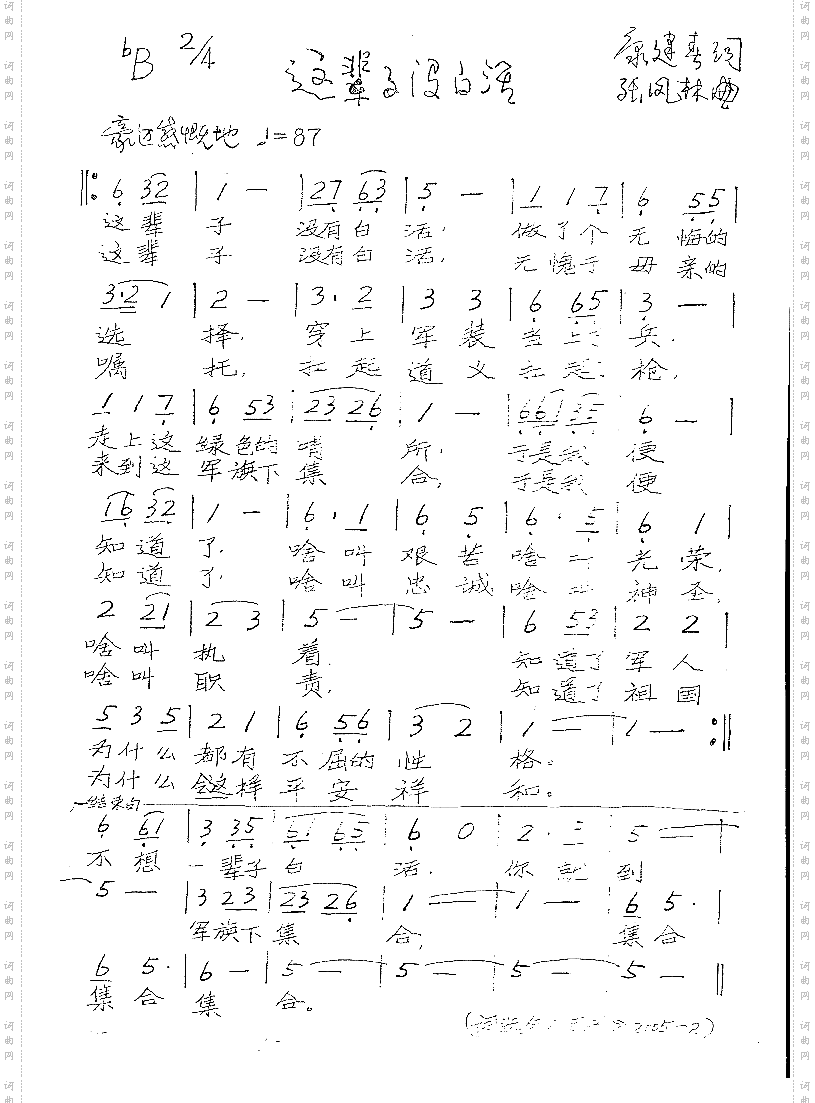 ♭B 2/4
这辈子没白活
康建春词
张凤林曲
豪迈感慨地 ♩=87
‖: 6 32 | 1 — | 27 63 | 5 — | 1 1 7 | 6 55 |
这辈 子 没有白 活, 做了个 无 悔的
这辈 子 没有白 活, 无愧于 母 亲的
3·2 1 | 2 — | 3· 2 | 3 3 | 6 65 | 3 — |
选 择, 穿上 军装 当上 兵,
嘱 托, 扛起 道义 扛起 枪,
1 1 7 | 6 53 | 23 26 | 1 — | 661 35 | 6 — |
走上这 绿色的 哨 所, 于是我 便
来到这 军旗下 集 合, 于是我 便
16 32 | 1 — | 6· 1 | 6 5 | 6· 3 | 6 1 |
知道 了, 啥叫 艰苦 啥叫 光荣,
知道 了, 啥叫 忠诚 啥叫 神圣,
2 21 | 2 3 | 5 — | 5 — | 6 53 | 2 2 |
啥叫 执 着, 知道了 军人
啥叫 职 责, 知道了 祖国
5 3 5 | 2 1 | 6 56 | 3 2 | 1 — | 1 — :‖
为什么 都有 不屈的 性 格。
为什么 会这样 平安 祥 和。
结束句
6 61 | 3 35 | 61 65 | 6 0 | 2· 3 | 5 — |
不想 一辈子白 活, 你就 到
5 — | 3 23 | 23 26 | 1 — | 1 — | 6 5· |
军旗下集 合, 集合
6 5· | 6 — | 5 — | 5 — | 5 — | 5 — ‖
集合 集 合。
2005-2)
词曲网